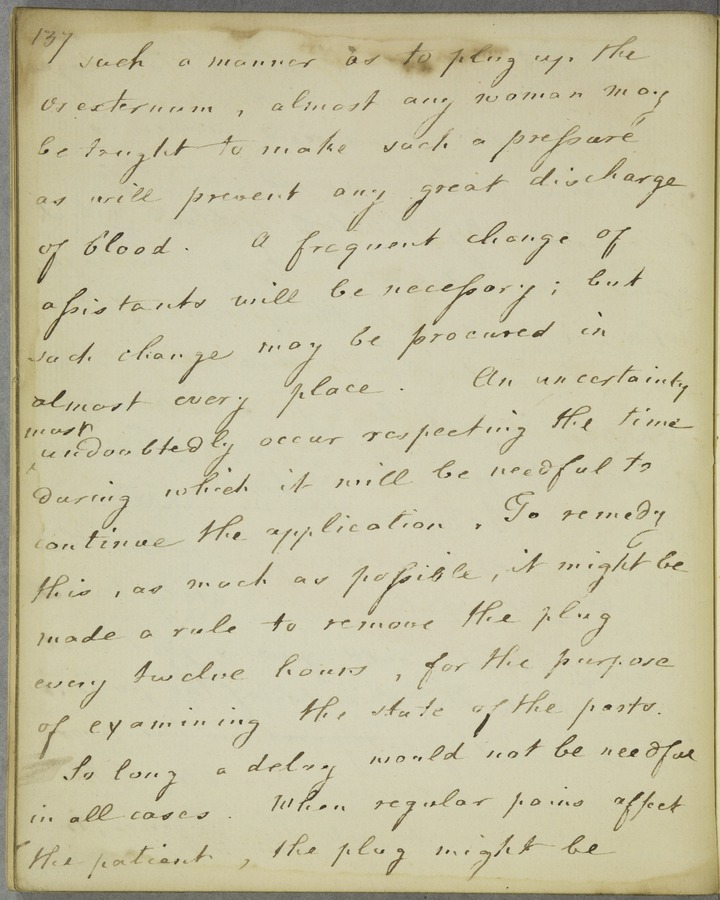 137
such a manner as to plug up the
os externum, almost any woman may
be taught to make such a pressure
as will prevent any great discharge
of blood. A frequent change of
assistants will be necessary; but
such change may be procured in
almost every place. An uncertainty
must
undoubtedly occur respecting the time
during which it will be needful to
continue the application. To remedy
this, as much as possible, it might be
made a rule to remove the plug
every twelve hours, for the purpose
of examining the state of the parts.
So long a delay would not be needful
in all cases. When regular pains affect
the patient, the plug might be